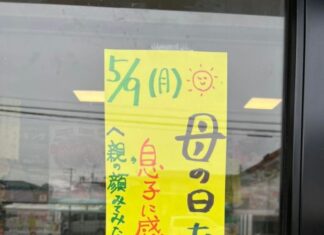 5/9(月)
母の日
息子に感
へ親の顔みてみた